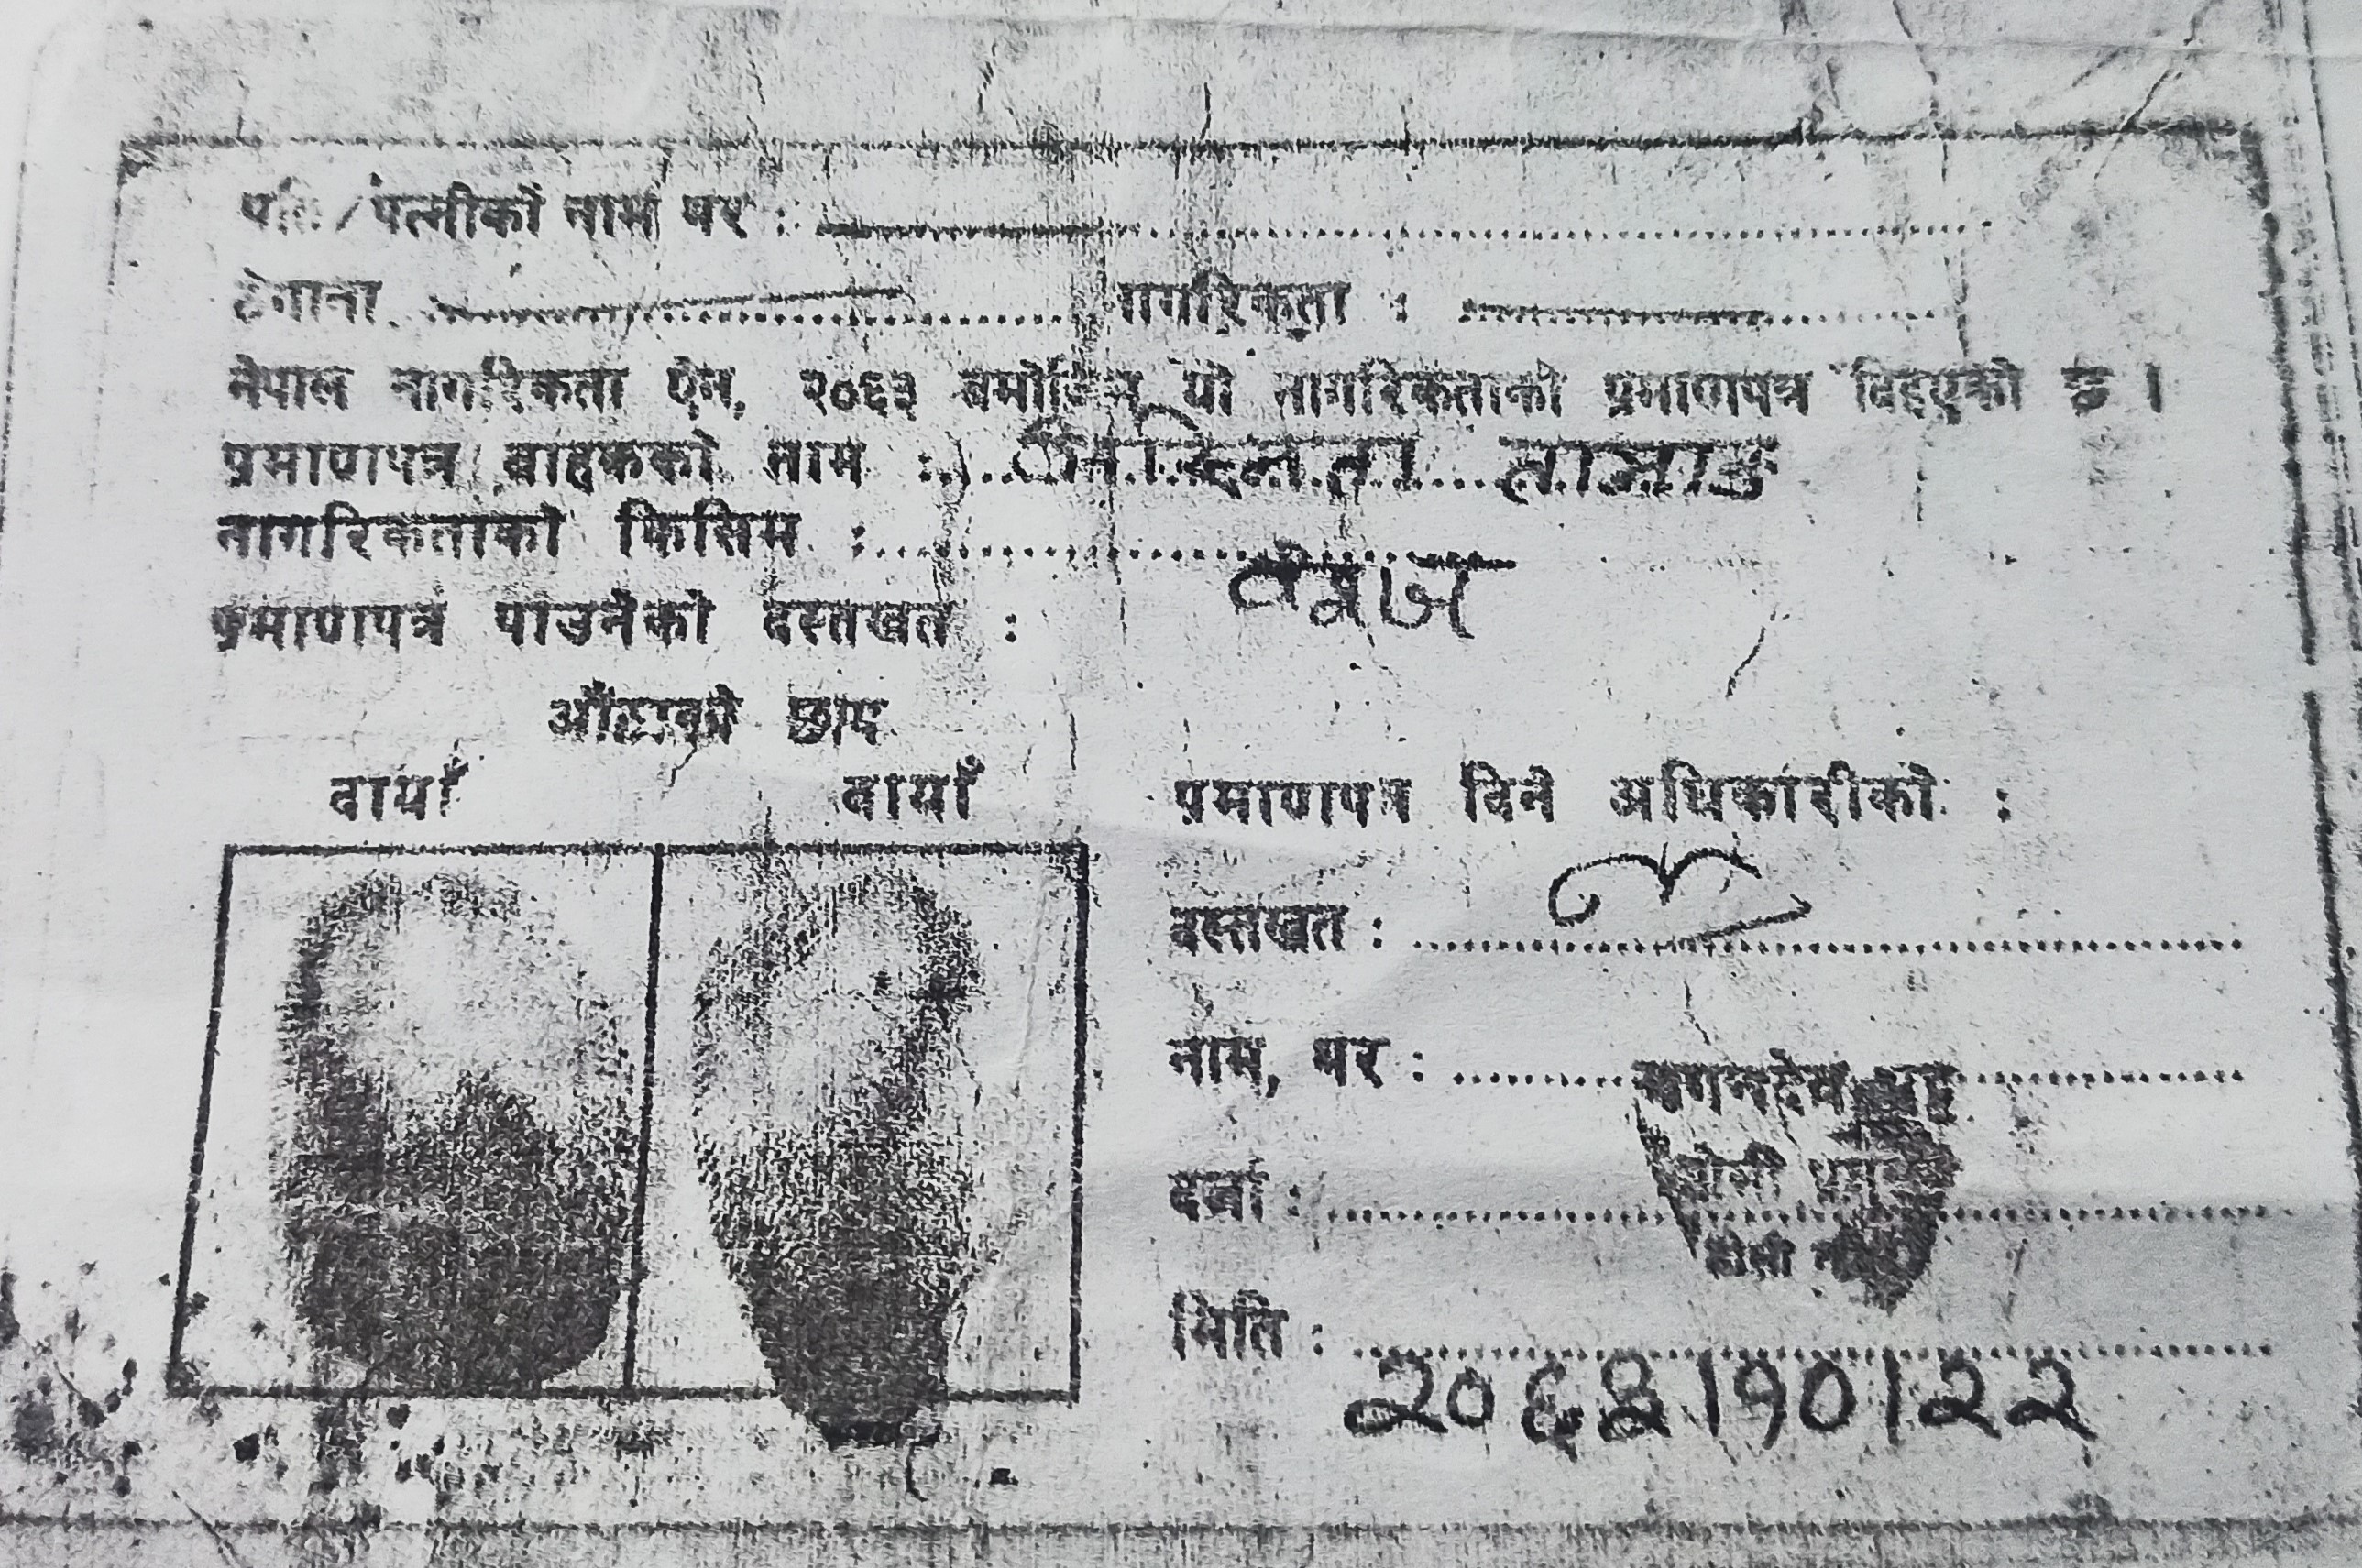 पति/पत्नीको नाम थर :
ठेगाना नागरिकता :
नेपाल नागरिकता ऐन, २०६३ बमोजिम यो नागरिकताको प्रमाणपत्र दिइएको छ ।
प्रमाणपत्र वाहकको नाम : तामाङ
नागरिकताको किसिम : वंशज
प्रमाणपत्र पाउनेको दस्तखत :
औंठाको छाप
दायाँ बायाँ
प्रमाणपत्र दिने अधिकारीको :
दस्तखत :
नाम, थर :
दर्जा :
मिति : २०६८।१०।२२